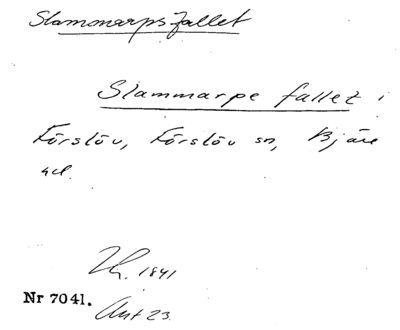 Slammarpsfallet
Slammarpe fallet i
Förslöv, Förslöv sn, Bjäre
hd.
1841
Nr 7041.
Akt 23.